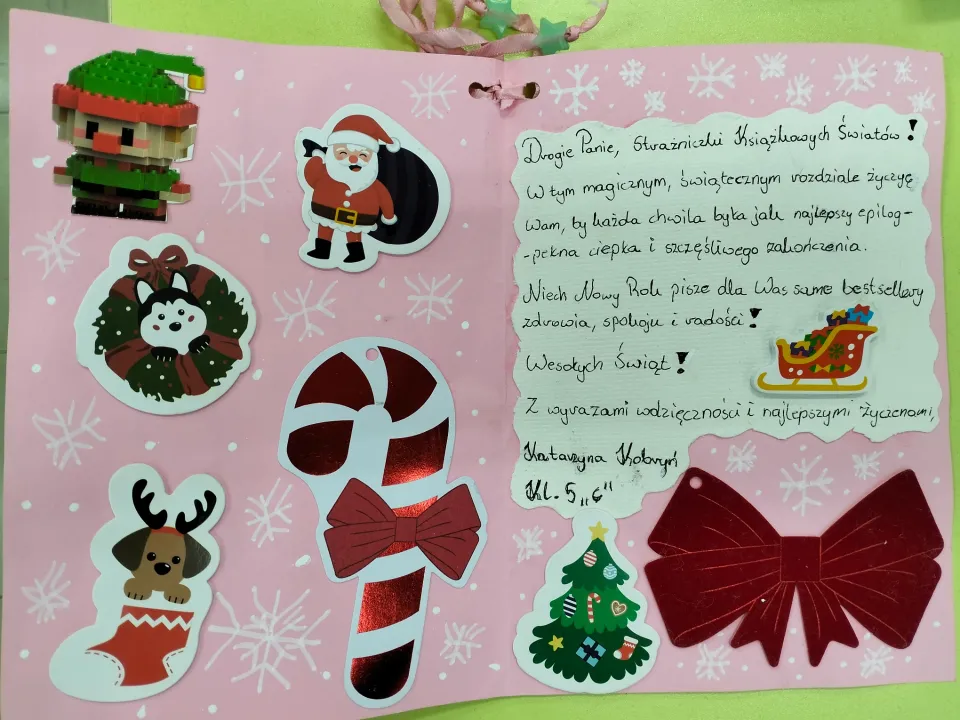 Drogie Panie, Strażniczki Książkowych Światów!
W tym magicznym, świątecznym rozdziale życzyę
Wam, by każda chwila była jak najlepszy epilog-
-pełna ciepła i szczęśliwego zakończenia.
Niech Nowy Rok pisze dla Was same bestsellery
zdrowia, spokoju i radości!
Wesołych Świąt!
Z wyrazami wdzięczności i najlepszymi życzeniami,
Katarzyna Kobryń
Kl. 5 „c"